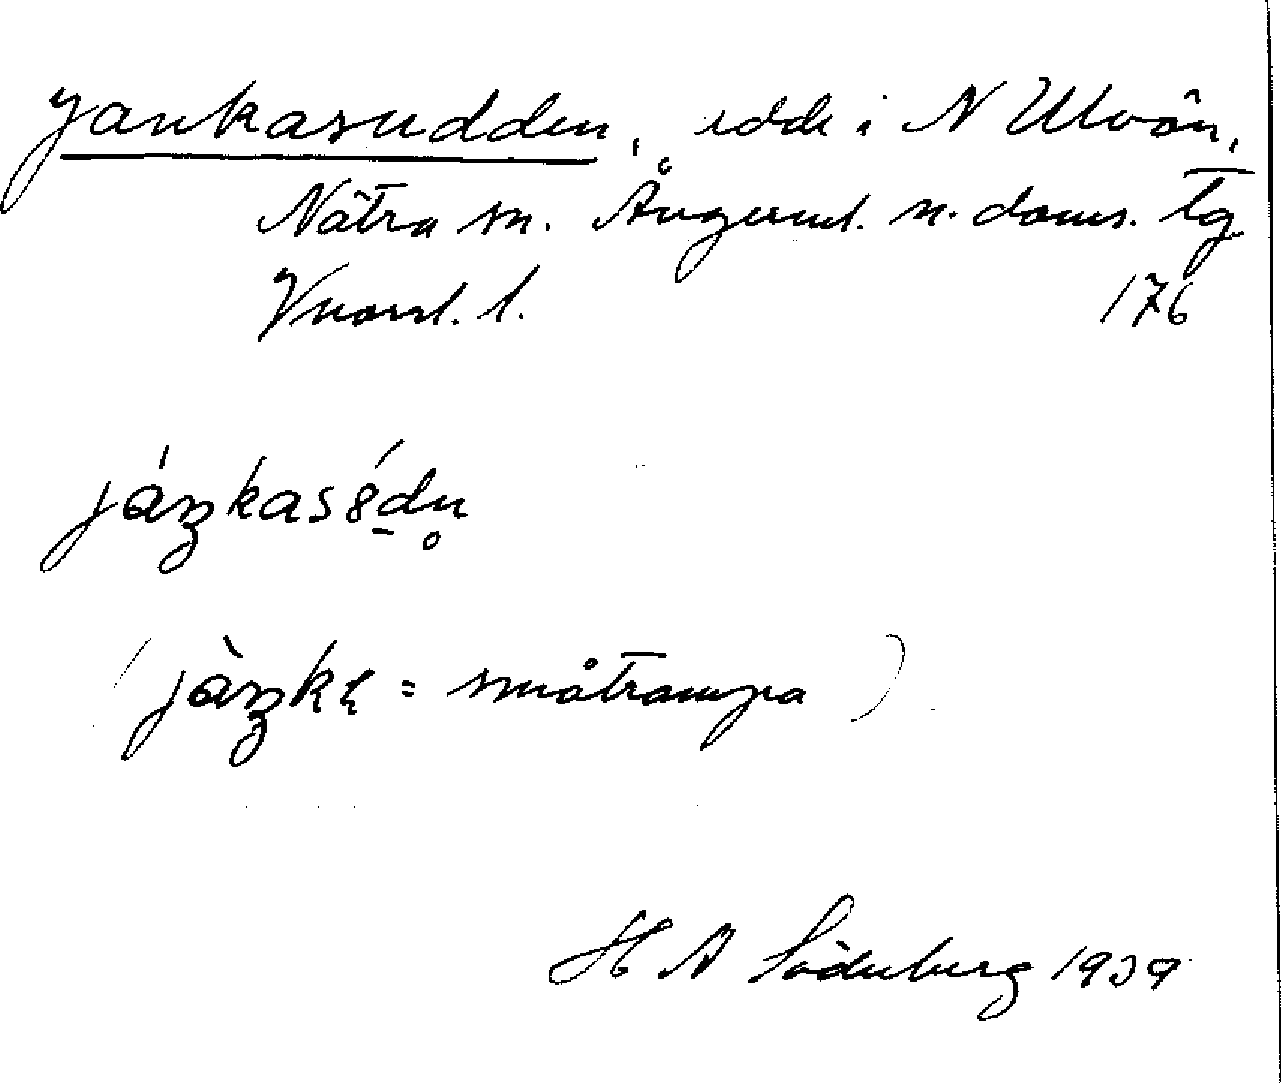 Jankasudden, udde i N Ulvön,
Nätra sn. Ångerml. n. doms. tg
Vnorrl. l. 176
jáŋkasśdn̥
(jàŋkɐ = småtrampa)
H A Söderberg 1939